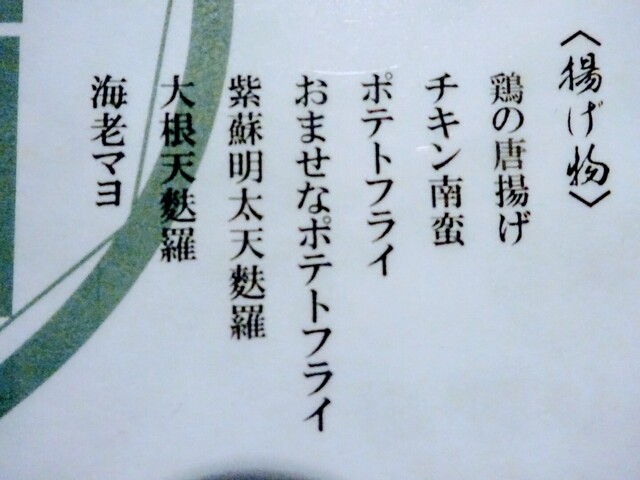 〈揚げ物〉
鶏の唐揚げ
チキン南蛮
ポテトフライ
おませなポテトフライ
紫蘇明太天麩羅
大根天麩羅
海老マヨ